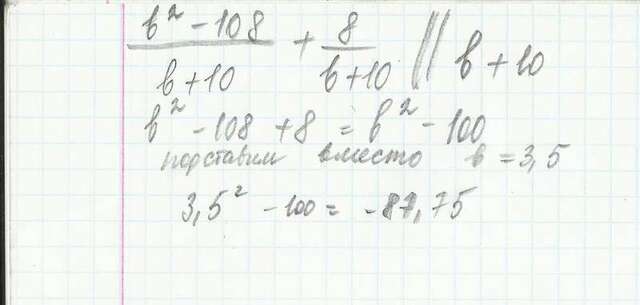 (b² - 108)/(b + 10) + 8/(b + 10) || b + 10
b² - 108 + 8 = b² - 100
подставим вместо b = 3,5
3,5² - 100 = -87,75